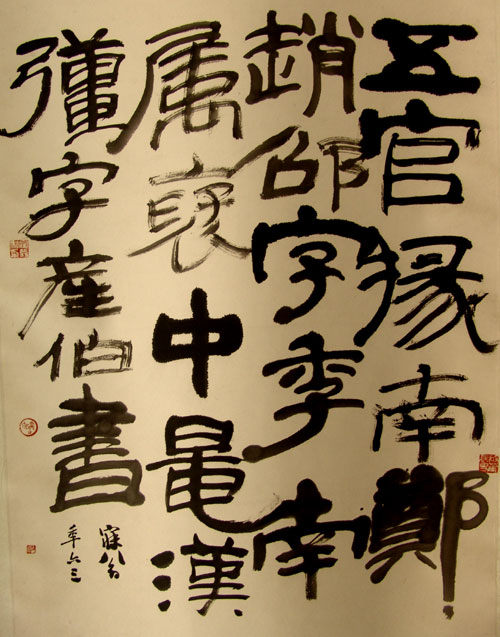 五官掾南鄭
趙邵字季南
属褒中鼂漢
彊字産伯書
年六三